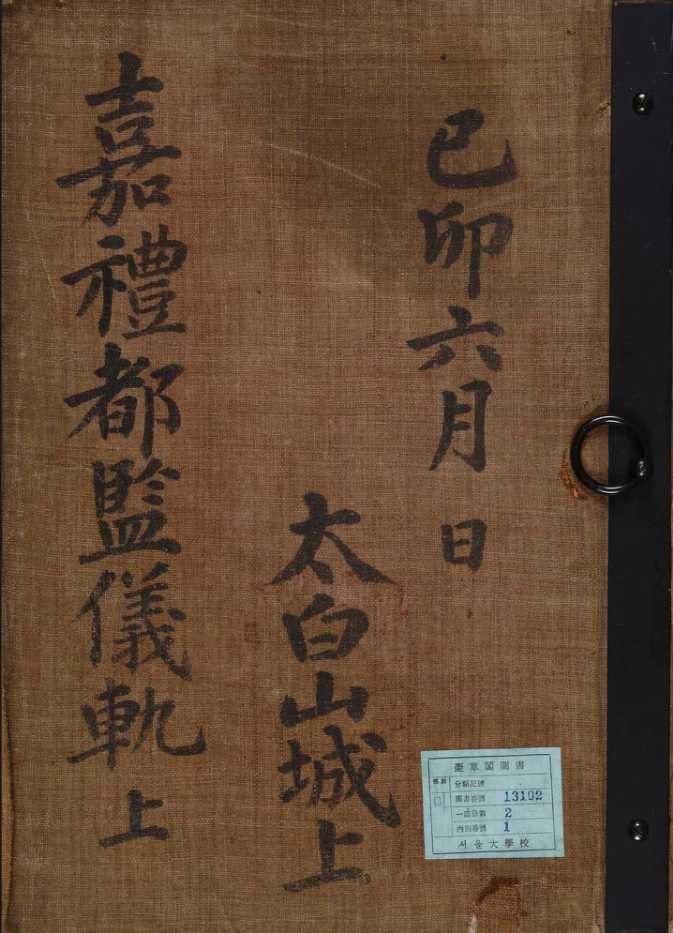 己卯六月 日
太白山城上
嘉禮都監儀軌 上
奎章閣圖書
分類記號
圖書番號 13102
一部冊數 2
內別番號 1
서울大學校